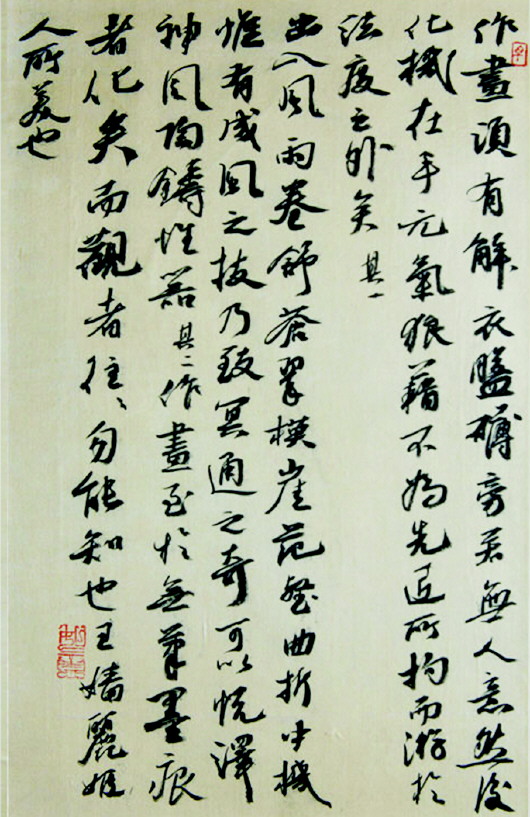 作畫須有解衣盤礴旁若無人意然後
化機在手元氣狼藉不為先匠所拘而游於
法度之外矣 其一
出入風雨卷舒蒼翠模崖范壑曲折中機
惟有成風之技乃致冥通之奇可以悅澤
神風陶鑄性器 其二 作畫至於無筆墨痕
者化矣而觀者往〻勿能知也王嬙麗姬
人所美也